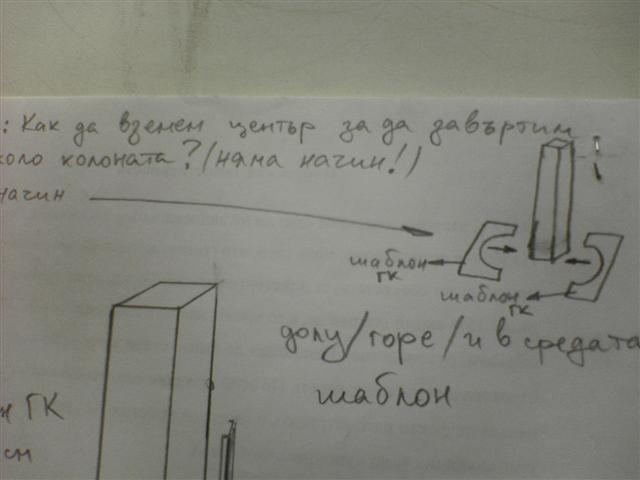 : Как да вземем център за да завъртим
коло колоната? (няма начин!)
начин
шаблон
ГК
шаблон
ГК
долу/горе/и в средата
шаблон
н ГК
см